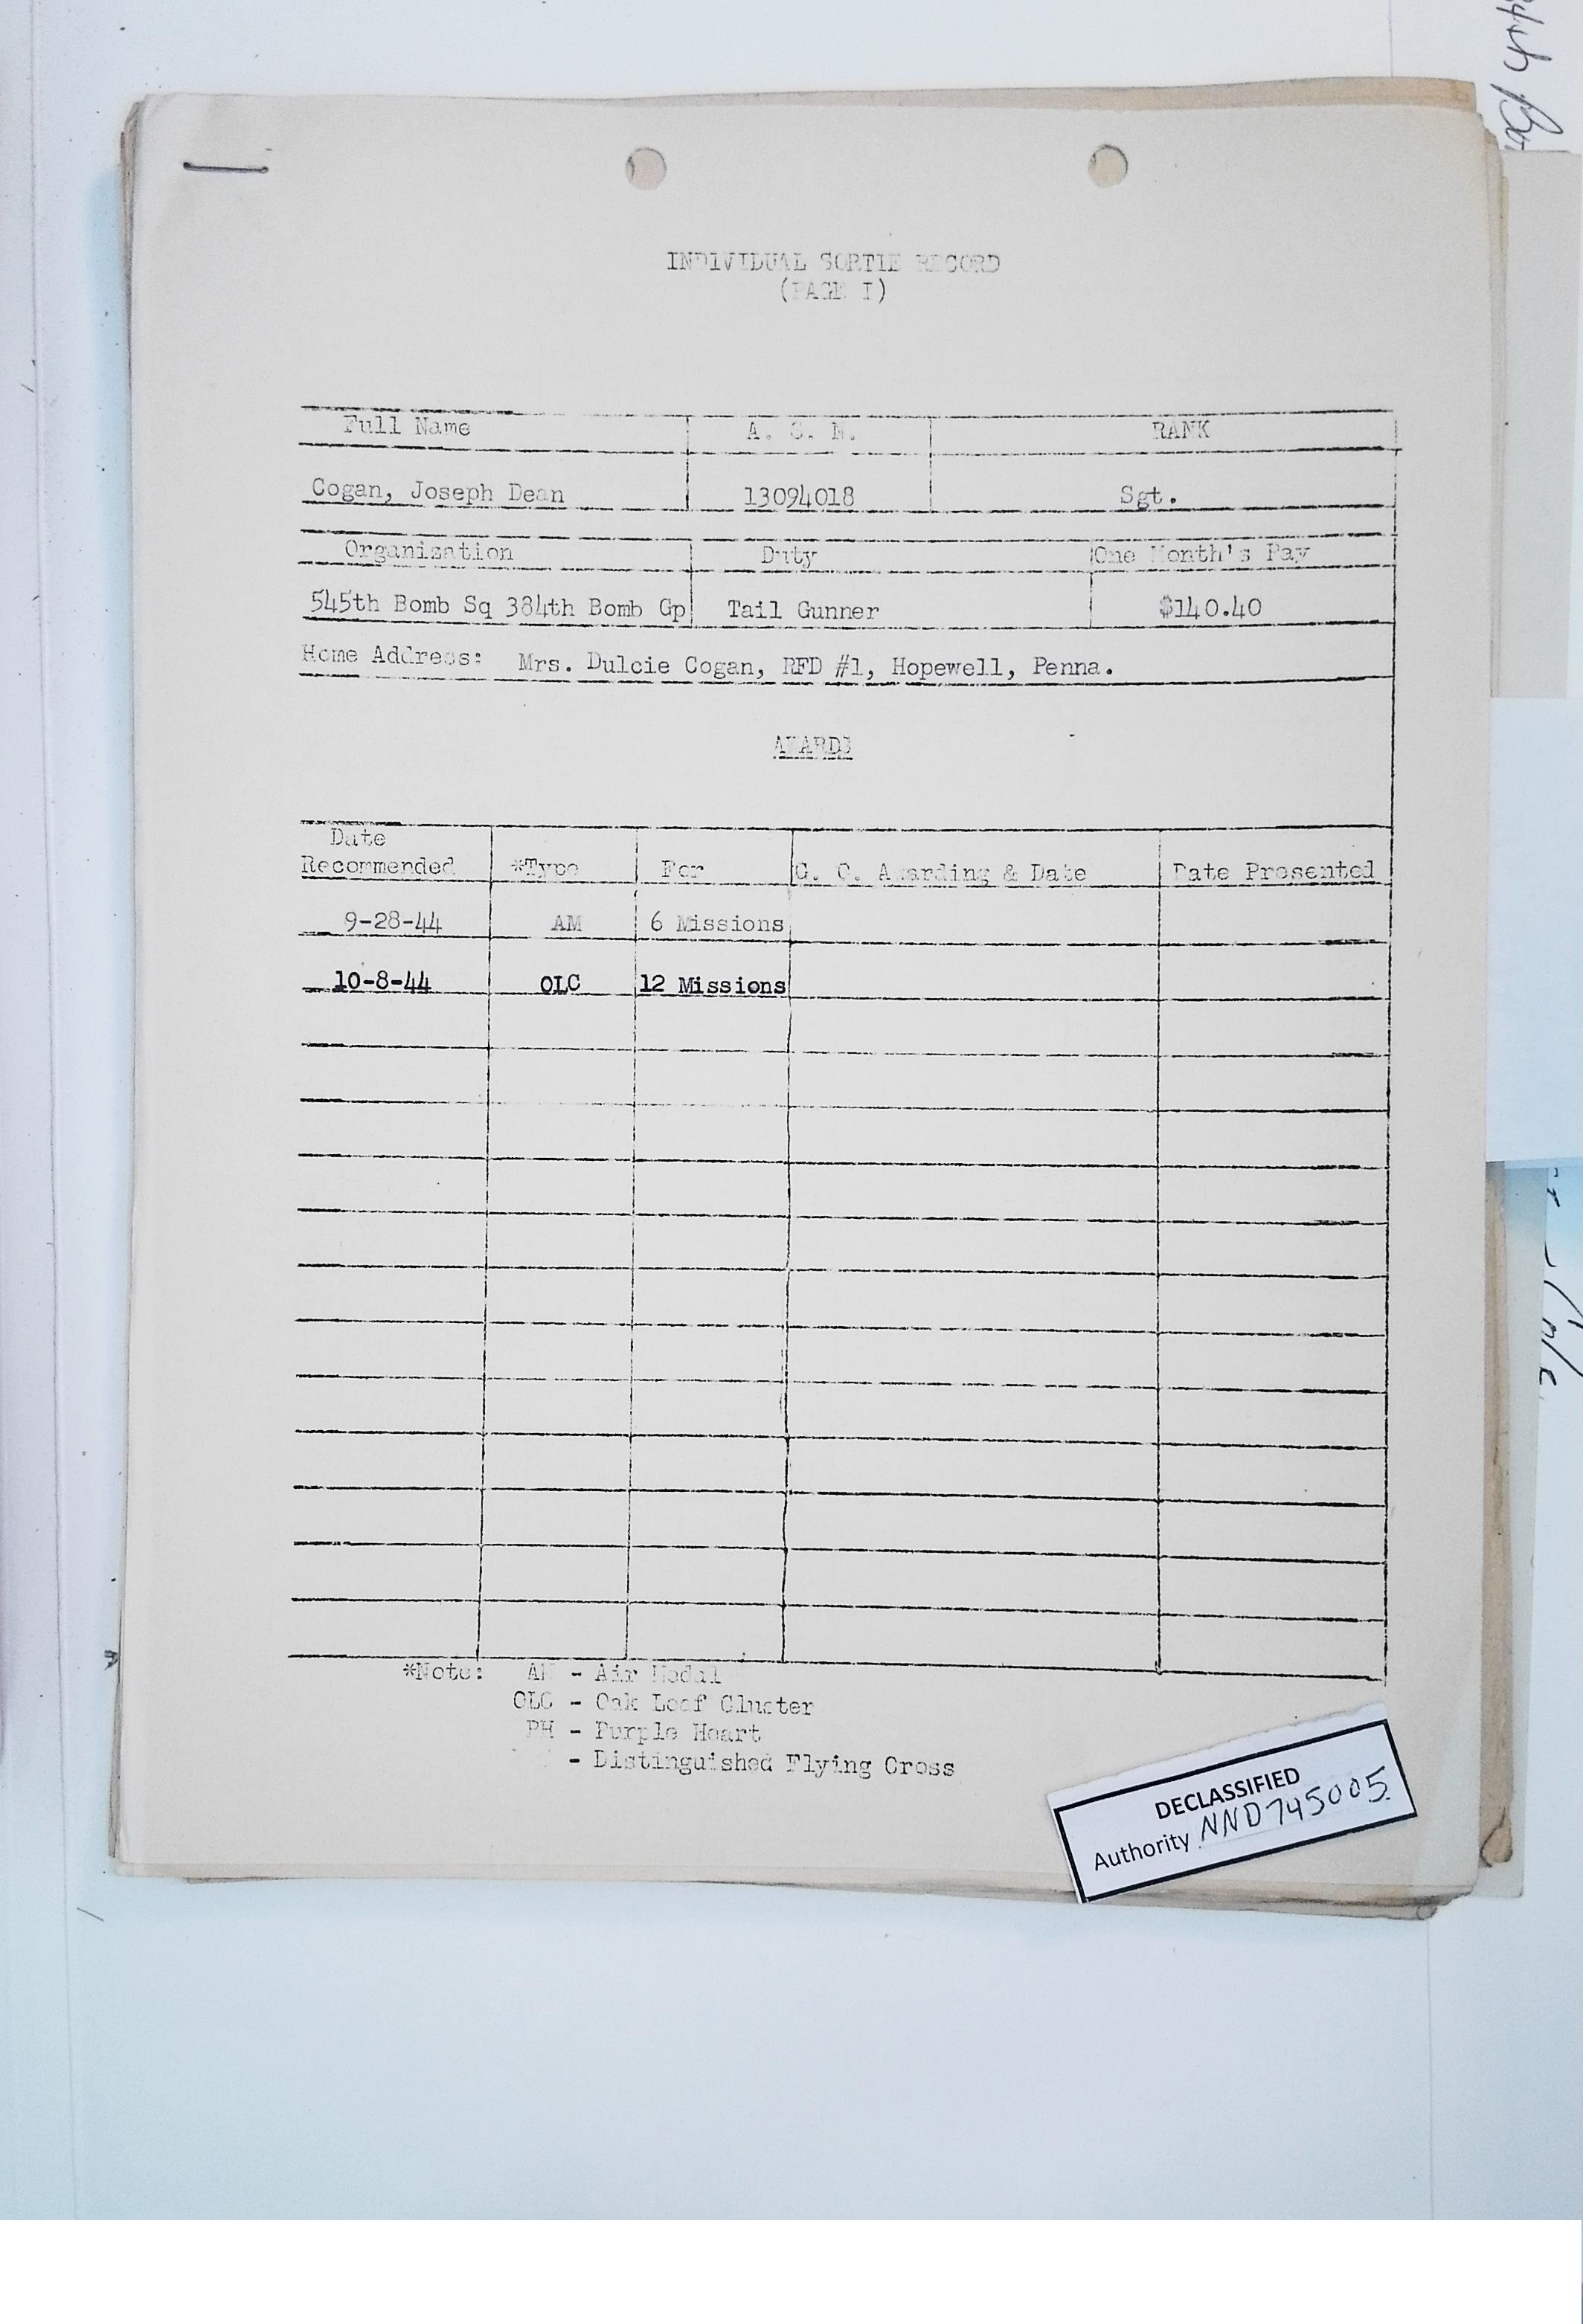 84th Bo
INDIVIDUAL SORTIE RECORD
(PAGE I)
Full Name A. S. N. RANK
Cogan, Joseph Dean 13094018 Sgt.
Organization Duty One Month's Pay
545th Bomb Sq 384th Bomb Gp Tail Gunner $140.40
Home Address: Mrs. Dulcie Cogan, RFD #1, Hopewell, Penna.
AWARDS
Date
Recommended *Type For G. O. Awarding & Date Date Presented
9-28-44 AM 6 Missions
10-8-44 OLC 12 Missions
*Note: AM - Air Medal
OLC - Oak Leaf Cluster
PH - Purple Heart
- Distinguished Flying Cross
DECLASSIFIED
Authority NND745005